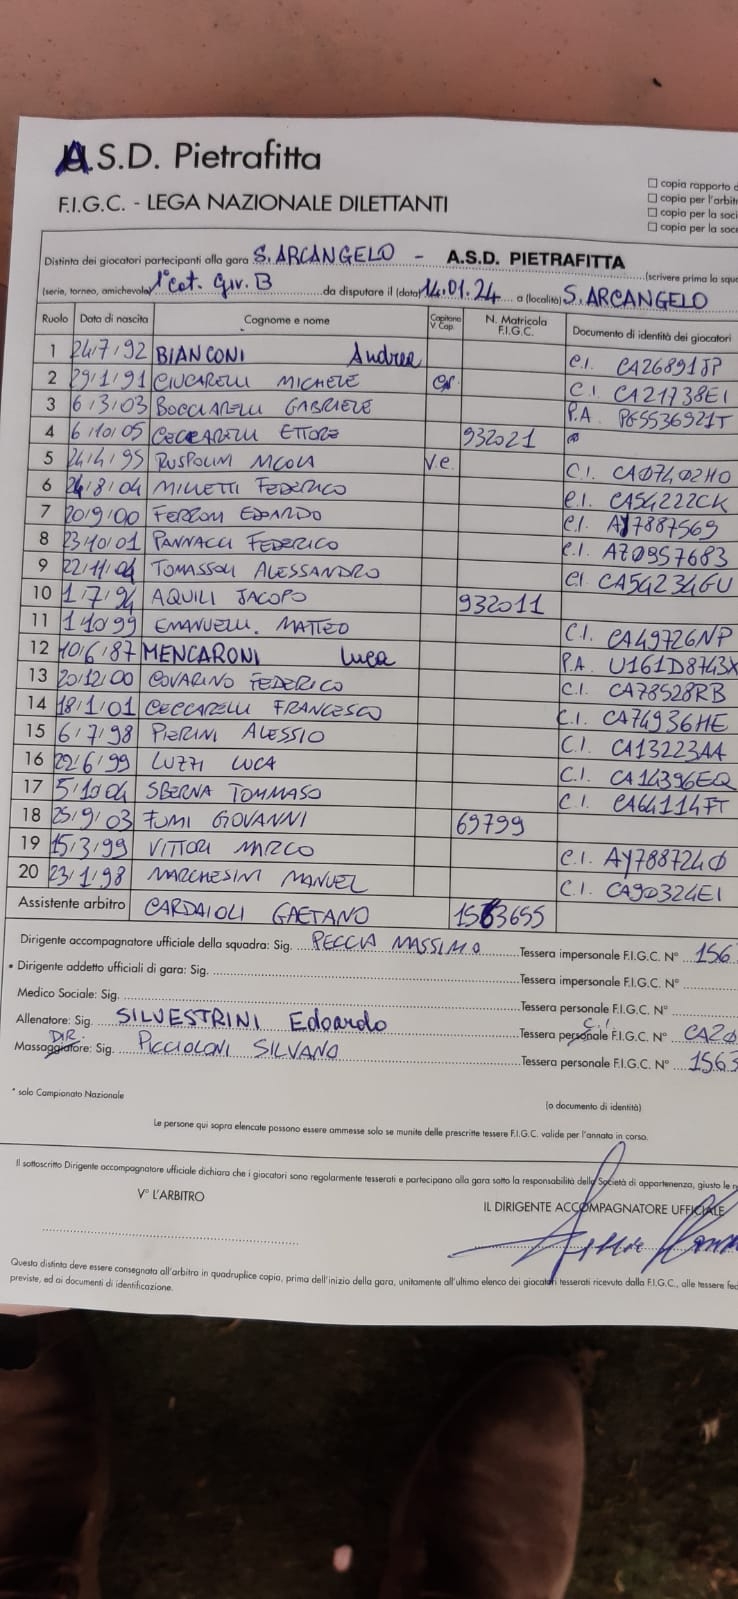 A.S.D. Pietrafitta
F.I.G.C. - LEGA NAZIONALE DILETTANTI
☐ copia rapporto
☐ copia per l'arbit
☐ copia per la soci
☐ copia per la soci
Distinta dei giocatori partecipanti alla gara S. ARCANGELO - A.S.D. PIETRAFITTA
(scrivere prima la squa
(serie, torneo, amichevole) 1° cat. Gir. B da disputare il (data) 14.01.24 a (località) S. ARCANGELO
Ruolo Data di nascita Cognome e nome Capitano V. Cap. N. Matricola F.I.G.C. Documento di identità dei giocatori
1 24/7/92 BIANCONI Andrea C.I. CA26891JP
2 29/1/91 CIUCARELLI MICHELE C.I. CA21738EI
3 6/3/03 BOCCIARELLI GABRIELE P.A. PG5536921T
4 6/10/05 CECCARELLI ETTORE 932021
5 24/4/95 RUSPOLINI NICOLA V.C. C.I. CA07402HO
6 24/8/04 MILLETTI FEDERICO C.I. CA54222CK
7 20/9/00 FERRONI EDOARDO C.I. AY7887569
8 23/10/01 PANNACCI FEDERICO C.I. AZ0957683
9 22/11/04 TOMASSOLI ALESSANDRO CI CA54234GU
10 1/7/94 AQUILI JACOPO 932011
11 1/10/99 EMANUELLI. MATTEO C.I. CA49726NP
12 10/6/87 MENCARONI Luca P.A. U161D8743X
13 20/12/00 COVARINO FEDERICO C.I. CA78528RB
14 18/1/01 CECCARELLI FRANCESCO C.I. CA74936HE
15 6/7/98 PIERINI ALESSIO C.I. CA13223AA
16 22/6/99 LUZZI LUCA C.I. CA14396EQ
17 5/10/04 SBERNA TOMMASO C.I. CA64114FT
18 25/9/03 FUMI GIOVANNI 69799
19 15/3/99 VITTORI MIRCO C.I. AY7887240
20 23/1/98 MARCHESINI MANUEL C.I. CA90324EI
Assistente arbitro CARDAIOLI GAETANO 1563655
Dirigente accompagnatore ufficiale della squadra: Sig. PECCIA MASSIMO Tessera impersonale F.I.G.C. N° 156
• Dirigente addetto ufficiali di gara: Sig. Tessera impersonale F.I.G.C. N°
Medico Sociale: Sig. Tessera personale F.I.G.C. N°
Allenatore: Sig. SILVESTRINI Edoardo Tessera personale C.I. F.I.G.C. N° CA20
DIR.
Massaggiatore: Sig. PICCIOLONI SILVANO Tessera personale F.I.G.C. N° 1563
* solo Campionato Nazionale
(o documento di identità)
Le persone qui sopra elencate possono essere ammesse solo se munite delle prescritte tessere F.I.G.C. valide per l'annata in corso.
Il sottoscritto Dirigente accompagnatore ufficiale dichiara che i giocatori sono regolarmente tesserati e partecipano alla gara sotto la responsabilità della Società di appartenenza, giusto le
V° L'ARBITRO
IL DIRIGENTE ACCOMPAGNATORE UFFICIALE
Questa distinta deve essere consegnata all'arbitro in quadruplice copia, prima dell'inizio della gara, unitamente all'ultimo elenco dei giocatori tesserati ricevuto dalla F.I.G.C., alle tessere fed
previste, ed ai documenti di identificazione.